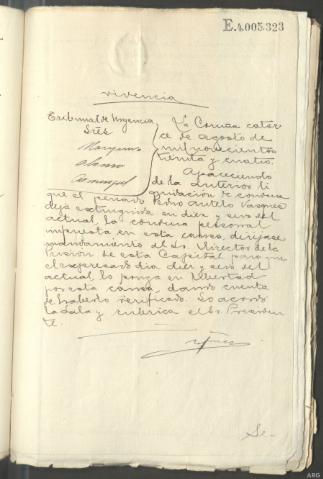 E.4.005.323
vivencia
Tribunal de Urgencia
Sres
La Coruña cator
ce de agosto de
mil novecientos
treinta y cuatro.
Apareciendo
de la anterior li
quidación de condena
que el penado Pedro Antelo Vazquez
deja extinguida en diez y seis del
actual la condena personal
impuesta en esta causa, dirijase
mandamiento al Sr. Director de la
Prision de esta Capital para que
el expresado dia diez y seis del
actual lo ponga en libertad
por esta causa, dando cuenta
de haberlo verificado. Lo acordó
la Sala y rubrica el Sr. Presiden
te.
Se-
ARG